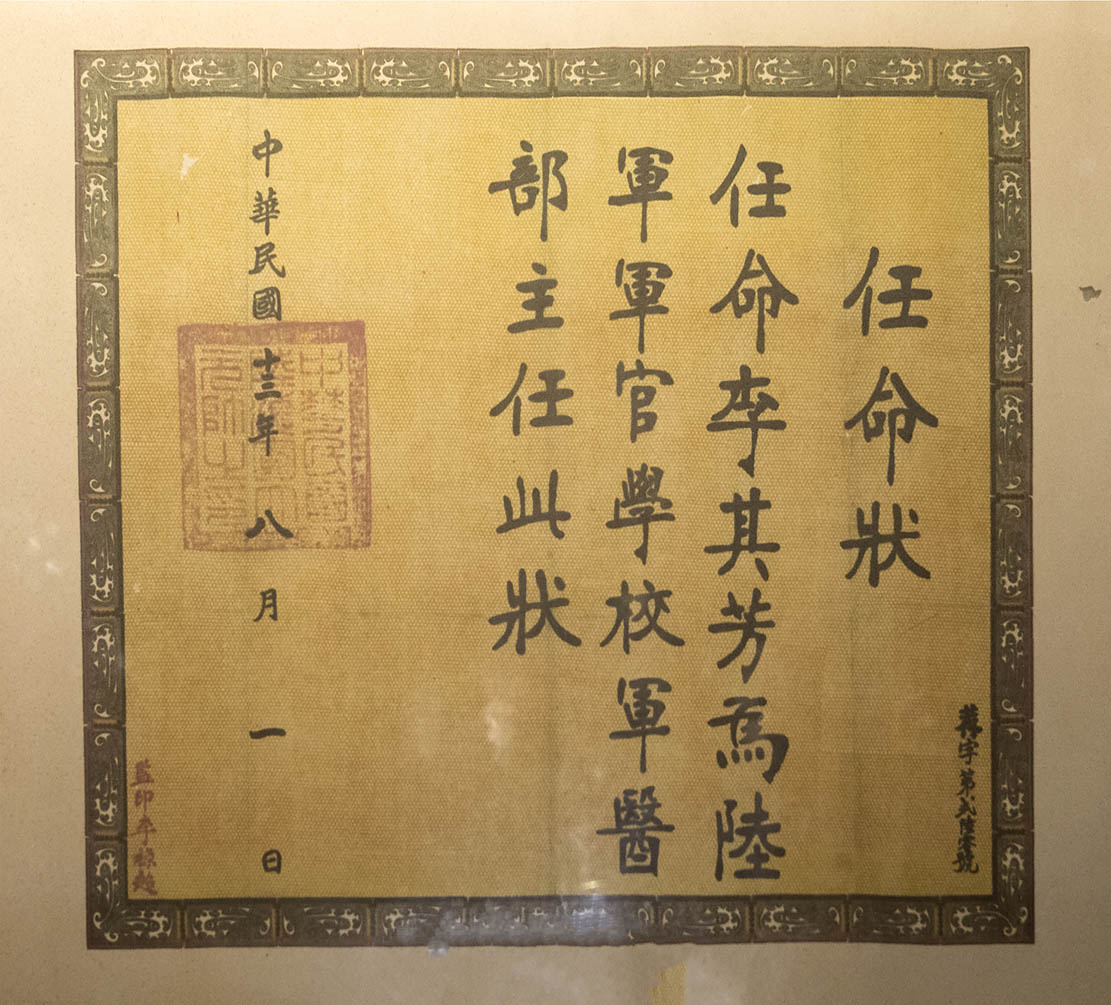 薦字第弍陸零號
任命狀
任命李其芳為陸
軍軍官學校軍醫
部主任此狀
中華民國十三年八月一日
中華民國
陸海軍大
元帥之印
監印李祿超